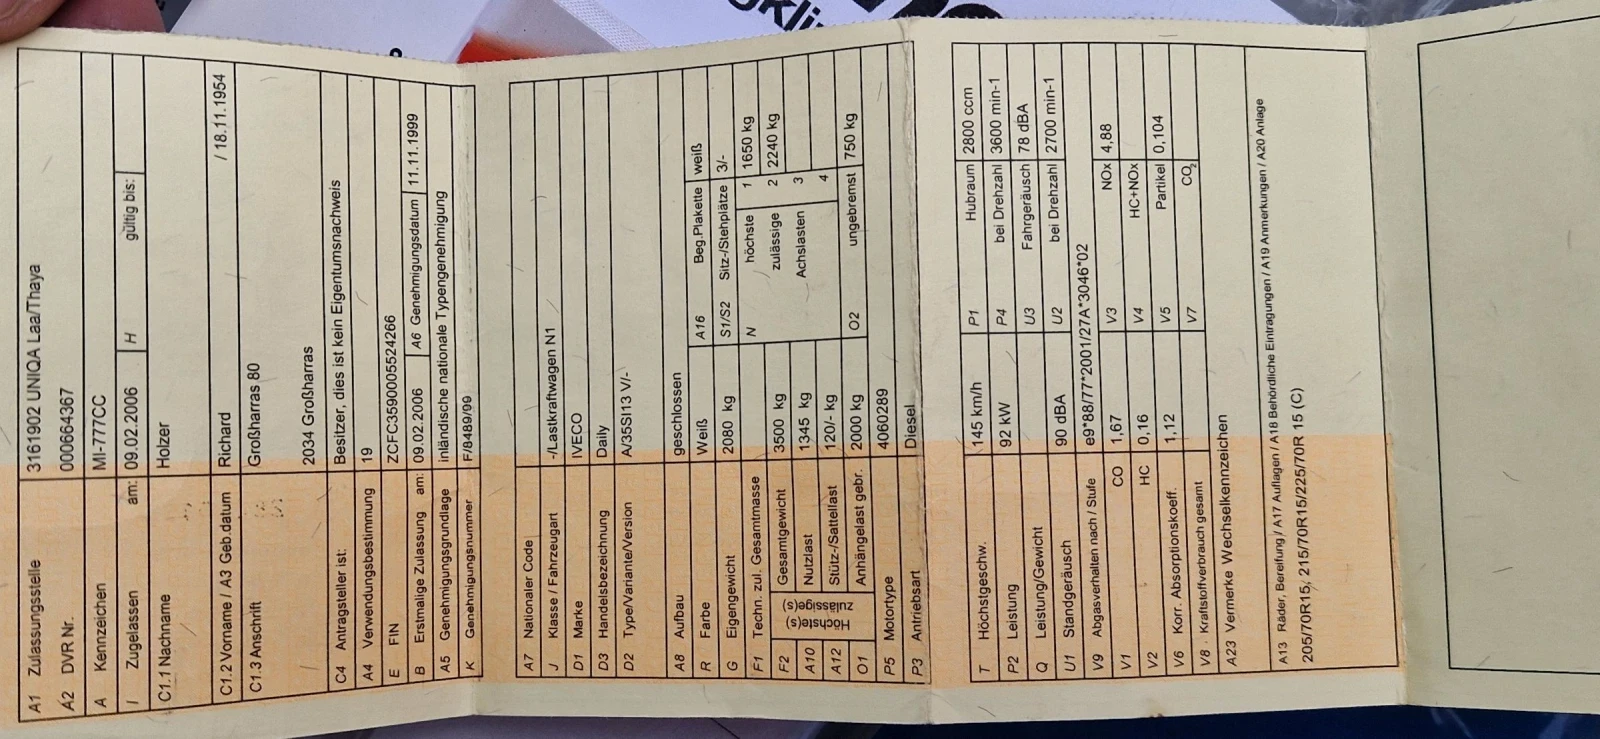 A1 Zulassungsstelle 3161902 UNIQA Laa/Thaya
A2 DVR Nr. 0000664367
A Kennzeichen MI-777CC
I Zugelassen am: 09.02.2006 H gültig bis:
C1.1 Nachname Holzer
C1.2 Vorname / A3 Geb.datum Richard / 18.11.1954
C1.3 Anschrift Großharras 80
2034 Großharras
C4 Antragsteller ist: Besitzer, dies ist kein Eigentumsnachweis
A4 Verwendungsbestimmung 19
E FIN ZCFC3590005524266
B Erstmalige Zulassung am: 09.02.2006 A6 Genehmigungsdatum 11.11.1999
A5 Genehmigungsgrundlage inländische nationale Typengenehmigung
K Genehmigungsnummer F/8489/99
A7 Nationaler Code
J Klasse / Fahrzeugart -/Lastkraftwagen N1
D1 Marke IVECO
D3 Handelsbezeichnung Daily
D2 Type/Variante/Version A/35SI13 V/-
A8 Aufbau geschlossen
R Farbe Weiß A16 Beg.Plakette weiß
G Eigengewicht 2080 kg S1/S2 Sitz-/Stehplätze 3/-
F1 Techn. zul. Gesamtmasse N höchste 1 1650 kg
Höchste(s) zulässige(s)
F2 Gesamtgewicht 3500 kg zulässige 2 2240 kg
A10 Nutzlast 1345 kg Achslasten 3
A12 Stütz-/Sattellast 120/- kg 4
O1 Anhängelast gebr. 2000 kg O2 ungebremst 750 kg
P5 Motortype 4060289
P3 Antriebsart Diesel
T Höchstgeschw. 145 km/h P1 Hubraum 2800 ccm
P2 Leistung 92 kW P4 bei Drehzahl 3600 min-1
Q Leistung/Gewicht U3 Fahrgeräusch 78 dBA
U1 Standgeräusch 90 dBA U2 bei Drehzahl 2700 min-1
V9 Abgasverhalten nach / Stufe e9*88/77*2001/27A*3046*02
V1 CO 1,67 V3 NOx 4,88
V2 HC 0,16 V4 HC+NOx
V6 Korr. Absorptionskoeff. 1,12 V5 Partikel 0,104
V8 Kraftstoffverbrauch gesamt V7 CO2
A23 Vermerke Wechselkennzeichen
A13 Räder, Bereifung / A17 Auflagen / A18 Behördliche Eintragungen / A19 Anmerkungen / A20 Anlage
205/70R15; 215/70R15/225/70R 15 (C)